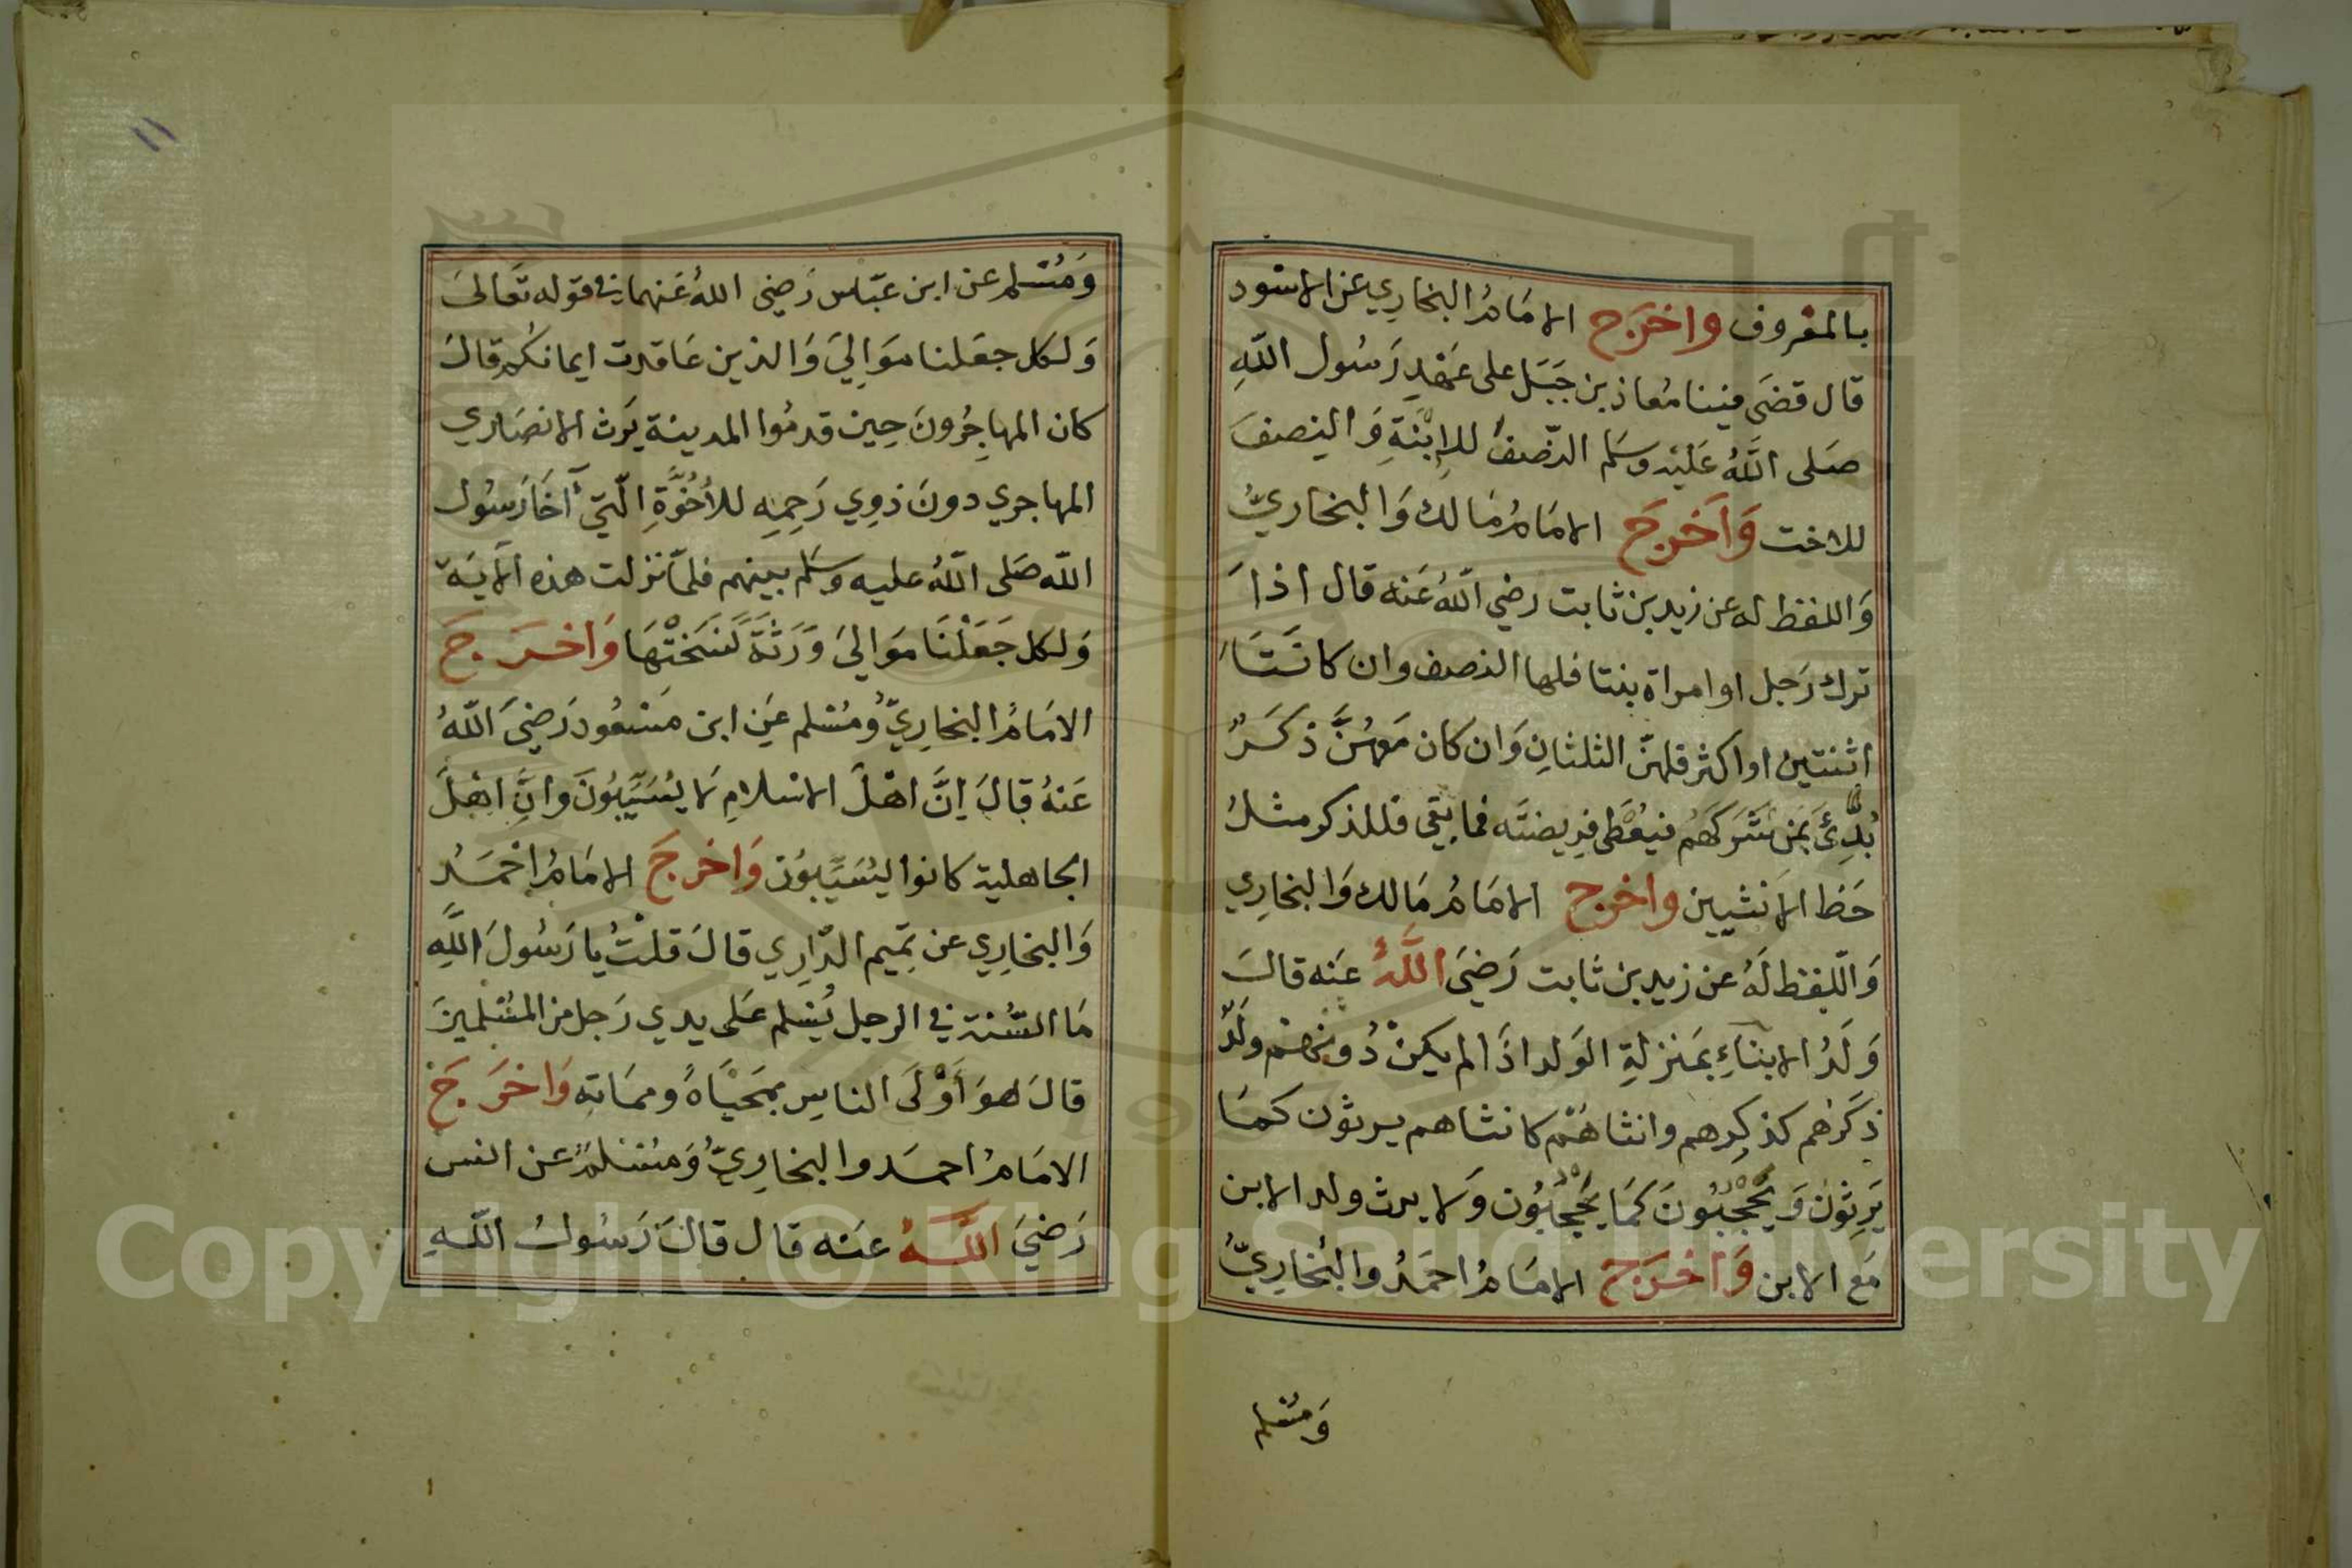 بالمعروف واخرج الامَامُ البخارِي عن الاسود
قال قضَى فيننا مُعاذ بن جَبَل على عَهْدِ رَسُول اللّهِ
صَلى اللّهُ عَليْه وسَلم النّصفُ للاِبْنَةِ وَالنِصفَ
للاخت وَاَخرجَ الامَامُ مَالك وَالبخاريُّ
وَاللفظ له عن زيد بن ثابت رضي اللّهُ عَنه قال اذا
ترك رَجل او امراة بنتا فلها النصف وان كانَتَا
اثنتين او اكثر فلهنّ الثلثانِ وَان كان مَعهُنَّ ذكَرٌ
بُدِّئَ بمَن شَرَكَهُم فيُعْطَى فرِيضتَه فما بقي فللذكر مثلُ
حَظ الاُنثيين واخرج الامَامُ مَالك وَالبخارِي
وَاللّفظ لَهُ عن زيد بن ثابت رَضيَ اللَّهُ عَنه قالَ
وَلَدُ الابناءِ بمَنزلةِ الوَلد اذَا لم يكنْ دُونهمْ ولَدٌ
ذكَرُهم كذكرِهم وانثاهُمْ كانثاهم يرثون كمَا
يَرِثونَ وَيَحْجُبُونَ كمَا يَحْجُبُون وَلا يرث ولد الابن
مَع الابن وَاخرَج الامَامُ احمَدُ والبُخارِيُّ
وَمُسْلم
١١
وَمُسْلم عن ابن عبّاس رَضيَ اللهُ عَنهما في قوله تعَالىَ
وَلكل جعَلنا موَالِيَ وَالذين عَاقدت ايمانكُم قالَ
كان المهاجِرُونَ حِين قدمُوا المدينة يَرث الانصَاري
المهاجري دونَ ذوِي رَحِمِه للأُخُوَّةِ الّتيَ آخَا رَسُول
اللّه صَلى اللّهُ عليه وسَلم بينهم فلمّا نزلت هذه الايَة
وَلكل جَعَلْنَا مَوَاليَ وَرَثَةً نَسَخَتْهَا وَاخرَجَ
الامَامُ البخارِيُّ ومُسْلم عَنِ ابن مَسْعُود رَضيَ اللّهُ
عَنهُ قالَ اِنَّ اهْلَ الاسْلامِ لَا يُسَيِّبُونَ وَانَّ اهْلَ
الجاهلية كانوا يُسَيِّبوُن وَاخرجَ الامَامُ احْمَدُ
وَالبخارِي عن تمِيم الدّارِي قالَ قلتُ يا رَسُولَ اللَّهِ
مَا السُّنة في الرجل يُسْلم عَلى يدي رَجل من المسْلمينَ
قالَ هوَ أَوْلَى الناسِ بمَحْيَاهُ ومماتِه وَاخرَجَ
الامَامُ احمَد والبخارِيُّ وَمُسْلمٌ عن انس
رَضيَ اللَّهُ عنه قال قالَ رَسُولُ اللّهِ
Copyright © King Saud University